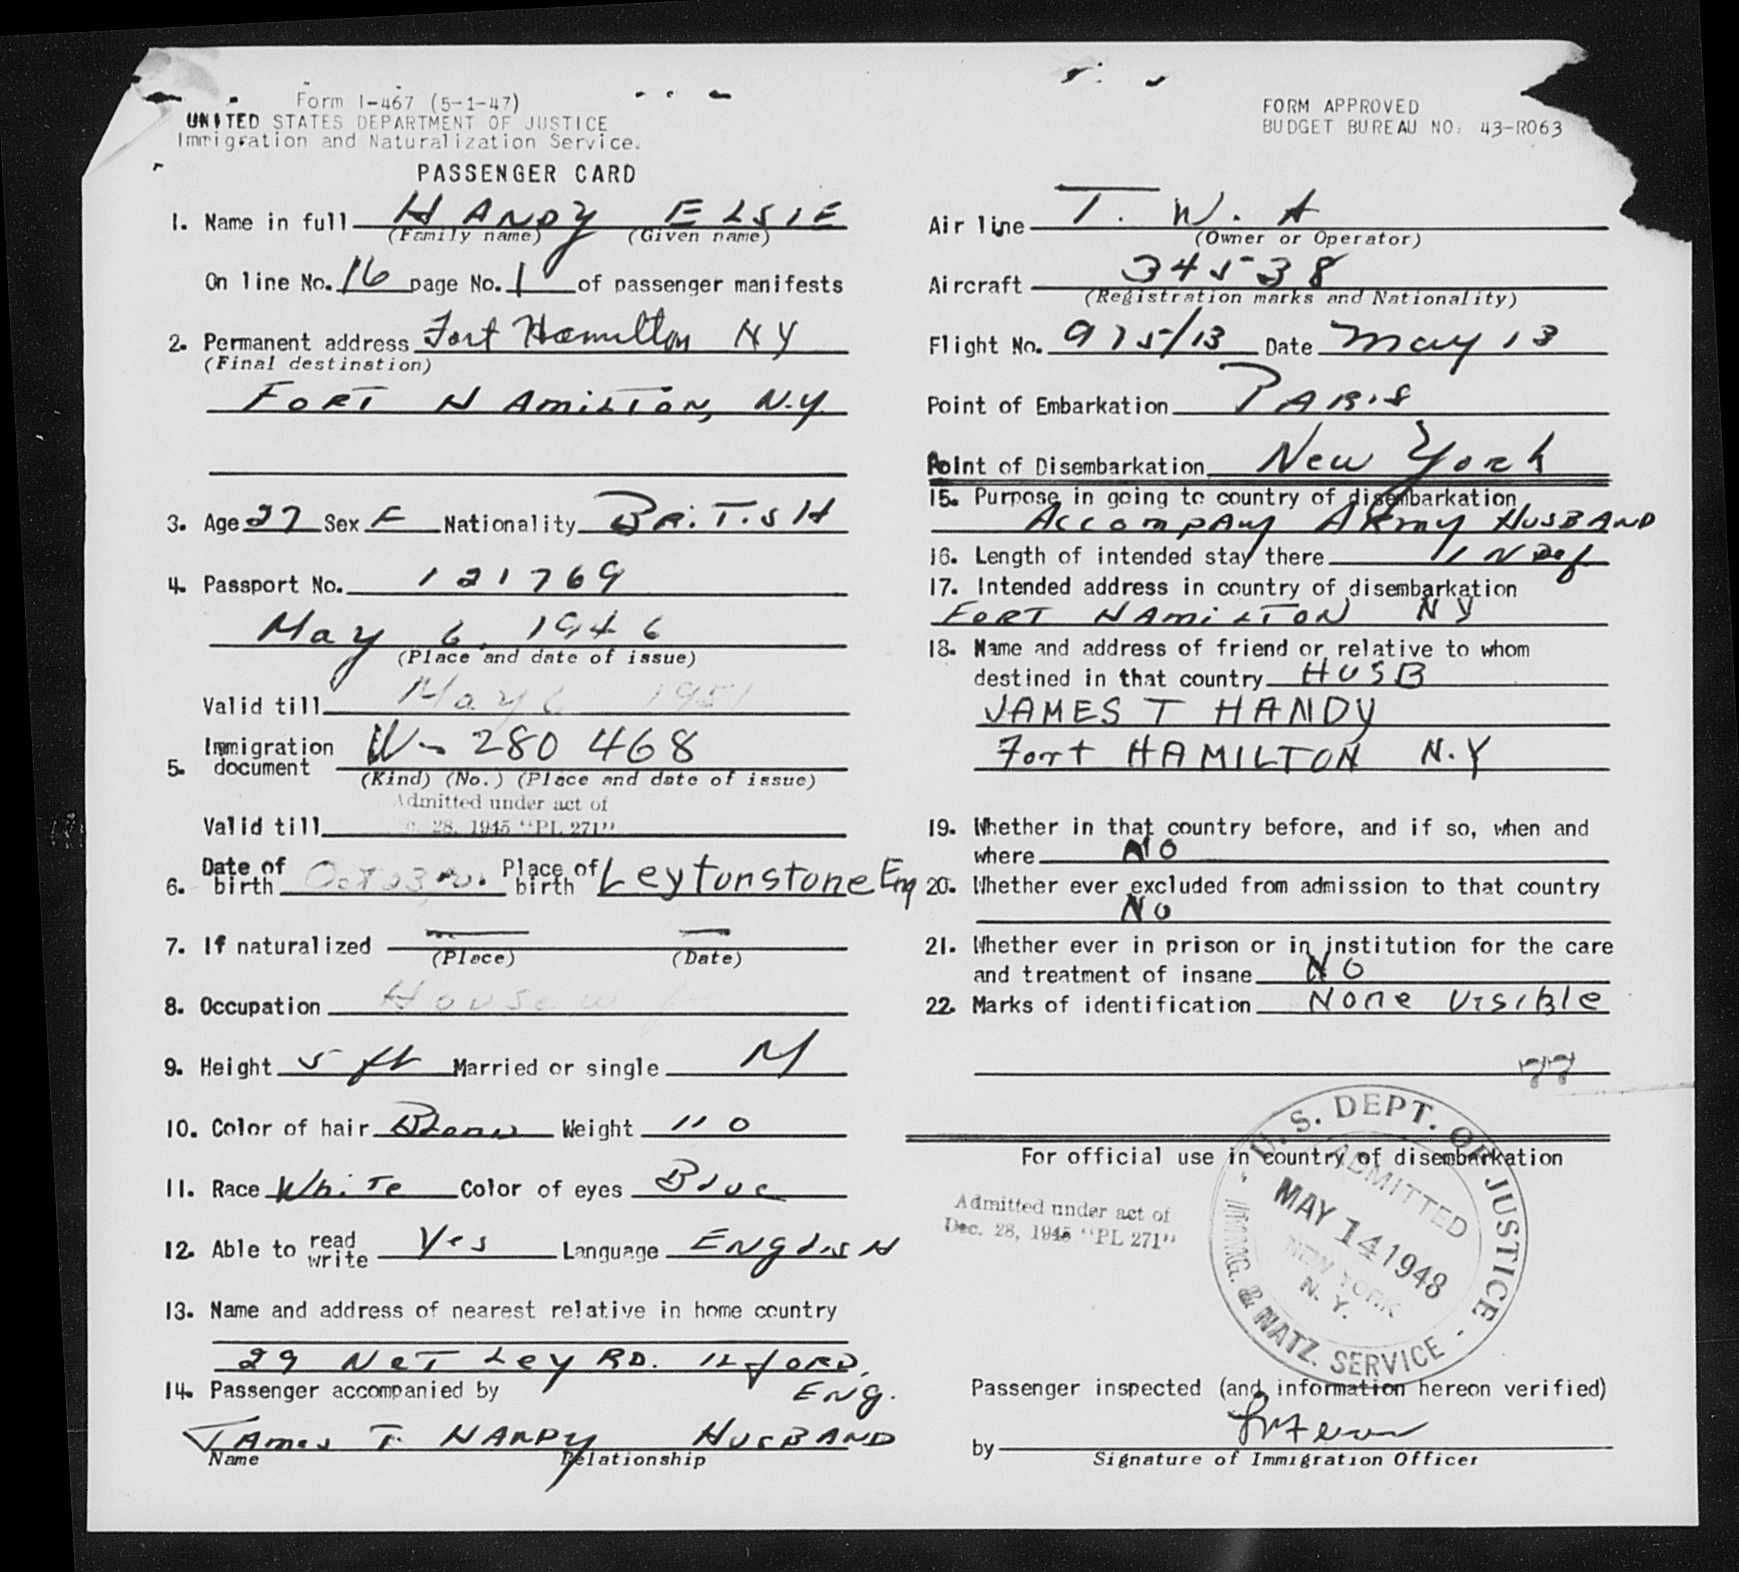 Form I-467 (5-1-47)
UNITED STATES DEPARTMENT OF JUSTICE
Immigration and Naturalization Service.
PASSENGER CARD
1. Name in full HANDY ELSIE
(Family name) (Given name)
On line No. 16 page No. 1 of passenger manifests
2. Permanent address Fort Hamilton NY
(Final destination)
FORT HAMILTON, N.Y.
3. Age 27 Sex F Nationality BRITISH
4. Passport No. 121769
May 6, 1946
(Place and date of issue)
Valid till May 6 1951
5. Immigration document W- 280 468
(Kind) (No.) (Place and date of issue)
Admitted under act of
Valid till 28, 1945 "PL 271"
6. Date of birth Oct 23, 20. Place of birth Leytonstone Eng
7. If naturalized — —
(Place) (Date)
8. Occupation Housew
9. Height 5 ft Married or single M
10. Color of hair Weight 110
11. Race White Color of eyes Blue
12. Able to read write Yes Language ENGLISH
13. Name and address of nearest relative in home country
29 NETLEY RD. ILFORD,
ENG.
14. Passenger accompanied by
JAMES T. HANDY HUSBAND
Name Relationship
FORM APPROVED
BUDGET BUREAU NO. 43-R063
Air line T.W.A
(Owner or Operator)
Aircraft 34538
(Registration marks and Nationality)
Flight No. 975/13 Date May 13
Point of Embarkation PARIS
Point of Disembarkation New York
15. Purpose in going to country of disembarkation
Accompany Army HUSBAND
16. Length of intended stay there INDef
17. Intended address in country of disembarkation
FORT HAMILTON NY
18. Name and address of friend or relative to whom
destined in that country HUSB
JAMES T HANDY
Fort HAMILTON N.Y
19. Whether in that country before, and if so, when and
where NO
20. Whether ever excluded from admission to that country
NO
21. Whether ever in prison or in institution for the care
and treatment of insane NO
22. Marks of identification None Visible
For official use in country of disembarkation
Admitted under act of
Dec. 28, 1945 "PL 271"
U. S. DEPT. OF JUSTICE
ADMITTED
MAY 14 1948
NEW YORK
N. Y.
IMMIG. & NATZ. SERVICE
Passenger inspected (and information hereon verified)
by
Signature of Immigration Officer